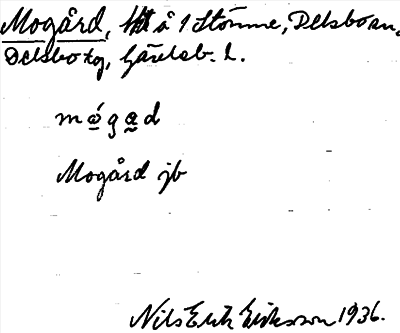 Mogård, Htt å 1 Stömne, Delsbo sn,
Delsbo tg, Gävleb. l.
mǻgad
Mogård jb
Nils Erik Eriksson 1936.